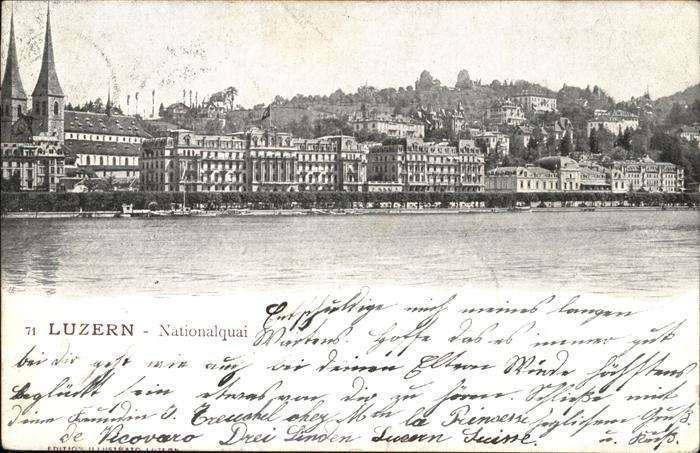 71 LUZERN - Nationalquai
Entschuldige mich meines langen
Wartens. Hoffe das es immer gut
bei dir geht wie auch bei deinen Eltern Würde höchstens
beglückt sein etwas von dir zu hören. Schließe mit
deine Freundin J. Treuchel chez Mme la Princesse herzlichem Gruß
de Vicovaro Drei Linden Lucern Suisse. u. Kuß.
EDITION ILLUSTRATO LUZERN